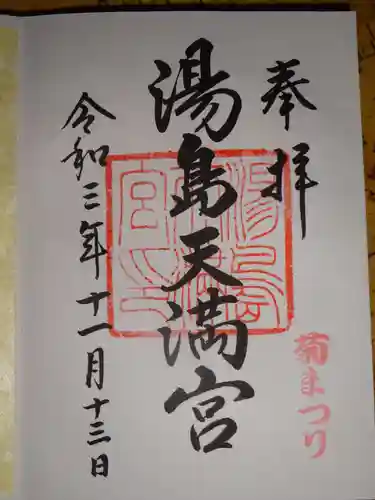 奉拝
菊まつり
湯島天満宮
令和三年十一月十三日